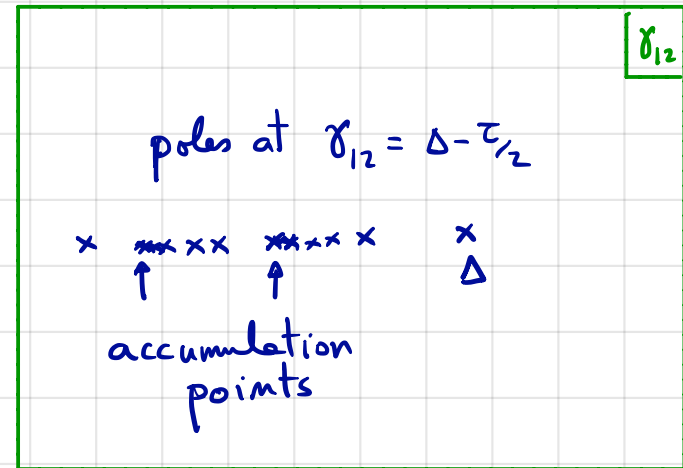 γ₁₂
poles at γ₁₂ = Δ - τ/2
Δ
accumulation
points